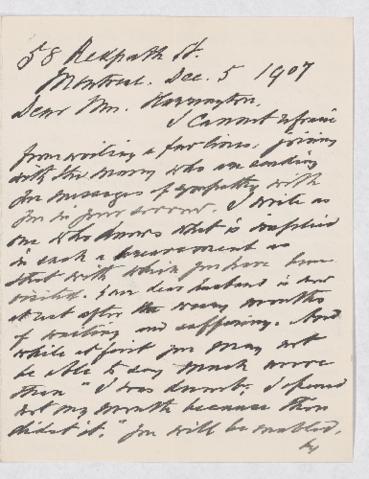 58 Redpath St.
Montreal. Dec. 5 1907
Dear Mrs. Harrington,
I cannot refrain
from writing a few lines, joining
with the many who are sending
you messages of sympathy with
you in your sorrow. I write as
one who knows what is implied
in such a bereavement as
that with which you have been
visited. Your dear husband is now
at rest after the weary months
of waiting and suffering. And
while at first you may not
be able to say much more
than "I was dumb, I opened
not my mouth because Thou
didst it." you will be enabled,
by